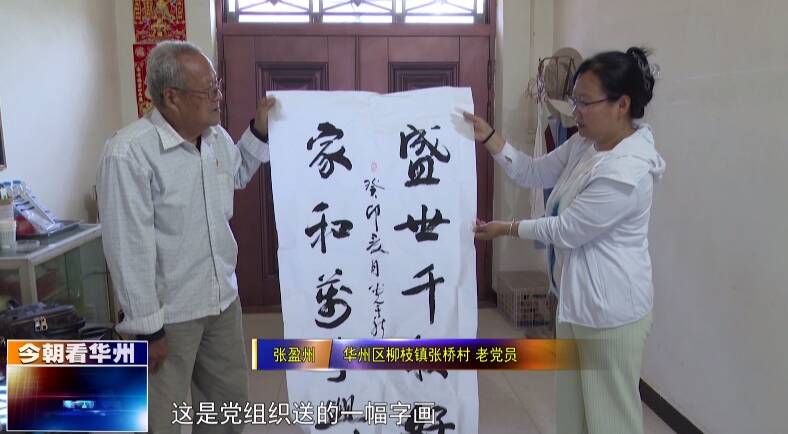 盛世千秋好
家和萬事
癸卯亥月
今朝看华州
张盈州 华州区柳枝镇张桥村 老党员
这是党组织送的一幅字画